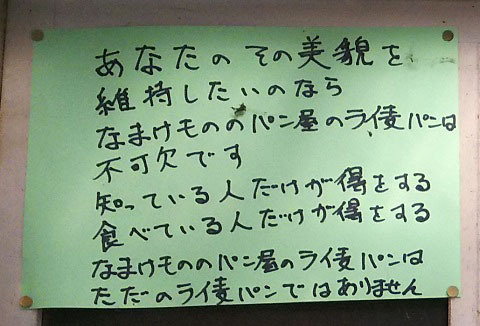 あなたのその美貌を
維持したいのなら
なまけもののパン屋のライ麦パンは
不可欠です
知っている人だけが得をする
食べている人だけが得をする
なまけもののパン屋のライ麦パンは
ただのライ麦パンではありません